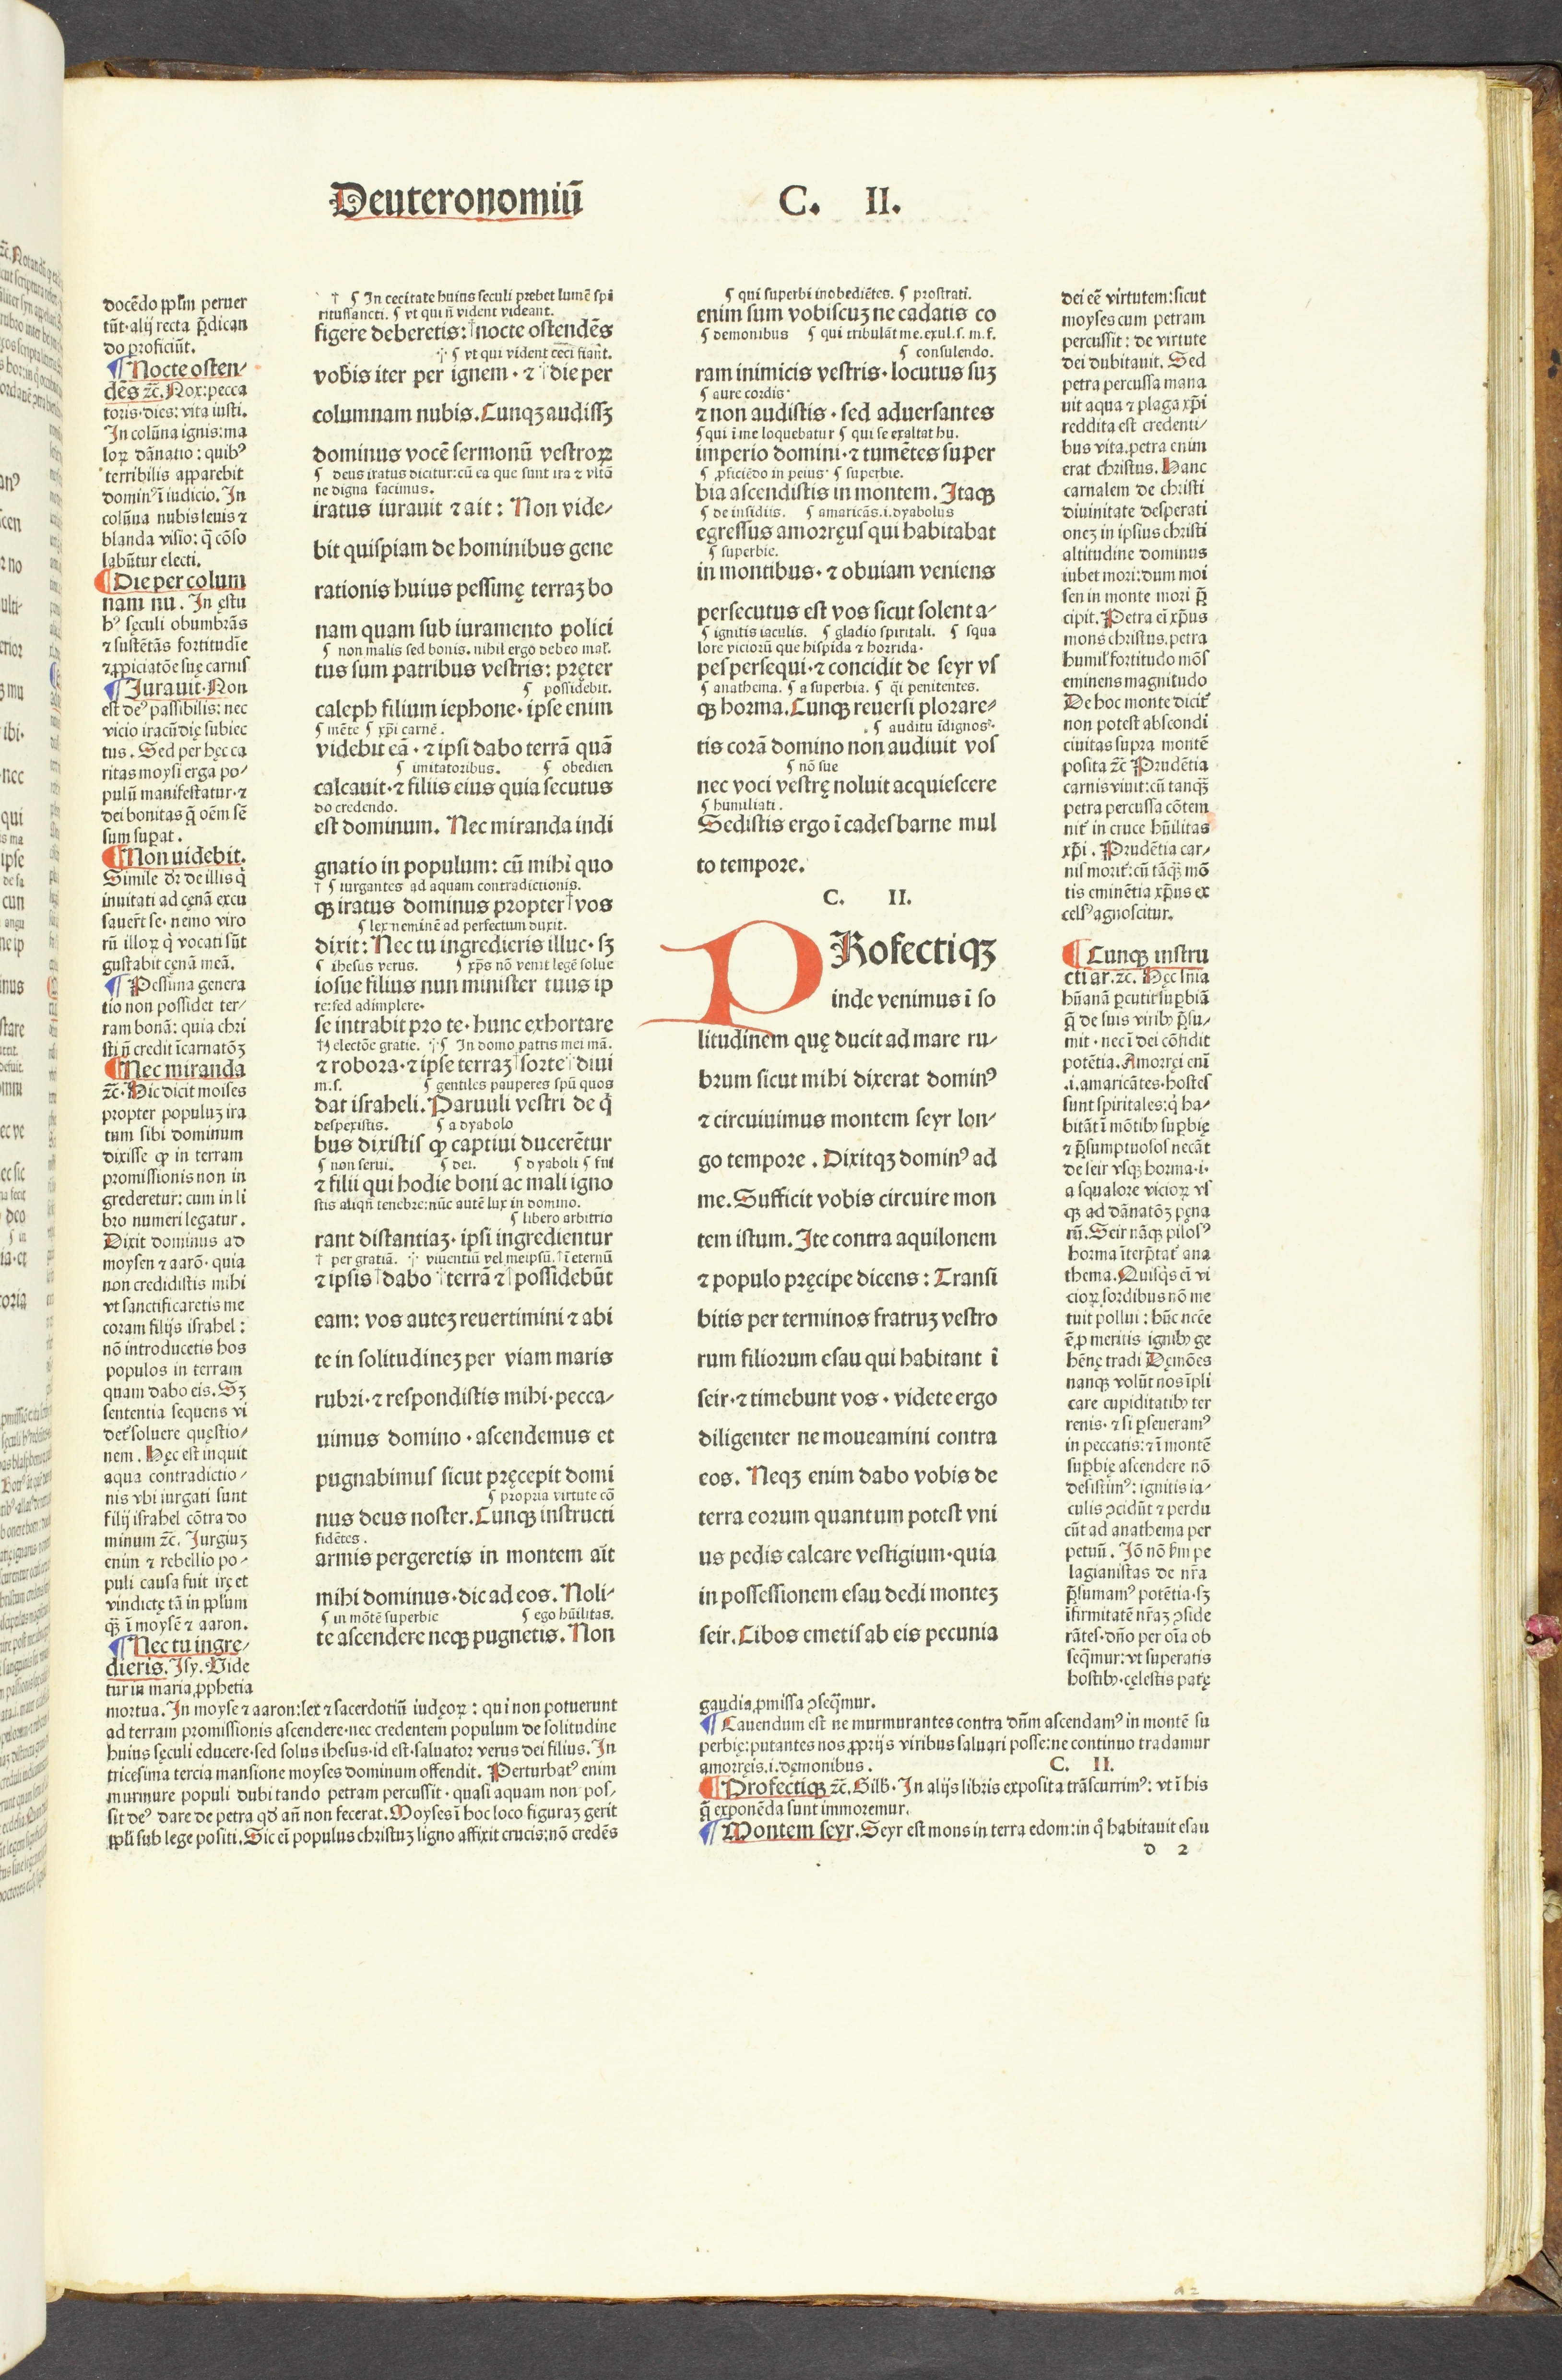 Deuteronomiū
C. II.
docēdo pplm peruer
tūt·alij recta p̄dican
do proficiūt.
¶ Nocte osten⸗
dēs ⁊c̄. Nox:pecca
toris·dies: vita iusti.
In colūna ignis:ma
loꝝ dānatio: quibꝰ
terribilis apparebit
dominꝰ ī iudicio. In
colūna nubis leuis ⁊
blanda visio: q̄ cōso
labūtur electi.
¶ Die per colum
nam nu. In ęstu
bꝰ sęculi obumbrās
⁊ sustētās fortitudīe
⁊ ꝓpiciatōe suę carnis
¶ Jurauit·Non
est deꝰ passibilis: nec
vicio iracūdię subiec
tus. Sed per hęc ca
ritas moysi erga po⸗
pulū manifestatur·⁊
dei bonitas q̄ oēm sē
sum supat.
¶ Non uidebit.
Simile dr̄ de illis q̇
inuitati ad cęnā excu
sauer̄t se· nemo viro
rū illoꝝ q̇ vocati sūt
gustabit cęnā meā.
¶ Pessima genera
tio non possidet ter⸗
ram bonā: quia chri
sti ñ credit īcarnatōꝫ
¶ Nec miranda
⁊c̄. Hic dicit moises
propter populuꝫ ira
tum sibi dominum
dixisse ꝙ in terram
promissionis non in
grederetur: cum in li
bro numeri legatur.
Dixit dominus ad
moysen ⁊ aarō· quia
non credidistis mihi
vt sanctificaretis me
coram filijs israhel:
nō introducetis hos
populos in terram
quam dabo eis. Sꝫ
sententia sequens vi
det᷑ soluere quęstio⸗
nem. Hęc est inquit
aqua contradictio⸗
nis vbi iurgati sunt
filij israhel cōtra do
minum ⁊c̄. Jurgiuꝫ
enim ⁊ rebellio po⸗
puli causa fuit irę et
vindictę tā in pplum
qꝫ ī moysē ⁊ aaron.
¶ Nec tu ingre⸗
dieris. Isy. Vide
tur in maria ꝓphetia
mortua. In moyse ⁊ aaron:lex ⁊ sacerdotiū iudęoꝝ: qui non potuerunt
ad terram promissionis ascendere·nec credentem populum de solitudine
huius sęculi educere·sed solus ihesus·id est·saluator verus dei filius. In
tricesima tercia mansione moyses dominum offendit. Perturbatꝰ enim
murmure populi dubitando petram percussit·quasi aquam non pos⸗
sit deꝰ dare de petra qd̄ añ non fecerat. Moyses ī hoc loco figuraꝫ gerit
ppli sub lege positi. Sic eī populus christuꝫ ligno affixit crucis:nō credēs
† ¶ In cecitate huius seculi prebet lumē spi
ritussancti. ¶ vt qui ñ vident videant.
figere deberetis: †nocte ostendēs
·|· ¶ vt qui vident ceci fiant.
vobis iter per ignem·⁊ †die per
columnam nubis. Cunqꝫ audissꝫ
dominus vocē sermonū vestroꝝ
¶ deus iratus dicitur:cū ea que sunt ira ⁊ vltō
ne digna facimus.
iratus iurauit ⁊ ait: Non vide⸗
bit quispiam de hominibus gene
rationis huius pessimę terraꝫ bo
nam quam sub iuramento polici
¶ non malis sed bonis. nihil ergo debeo mal᷑.
tus sum patribus vestris: pręter
¶ possidebit.
caleph filium iephone·ipse enim
¶ mēte ¶ xp̄i carnē.
videbit eā·⁊ ipsi dabo terrā quā
¶ imitatoribus. ¶ obedien
calcauit·⁊ filiis eius quia secutus
do credendo.
est dominum. Nec miranda indi
gnatio in populum: cū mihi quo
† ¶ iurgantes ad aquam contradictionis.
qꝫ iratus dominus propter †vos
¶ lex neminē ad perfectum duxit.
dixit: Nec tu ingredieris illuc·sꝫ
¶ ihesus verus. ¶ xp̄s nō venit legē solue
iosue filius nun minister tuus ip
re:sed adimplere.
se intrabit pro te·hunc exhortare
†¶ electōe gratie. ·|·¶ In domo patris mei mā.
⁊ robora·⁊ ipse terraꝫ †sorte †diui
m.s. ¶ gentiles pauperes spū quos
dat israheli. Paruuli vestri de q̇
despexistis. ¶ a dyabolo
bus dixistis ꝙ captiui ducerētur
¶ non serui. ¶ dei. ¶ dyaboli ¶ fui
⁊ filii qui hodie boni ac mali igno
stis aliqñ tenebre:nūc autē lux in domino.
¶ libero arbitrio
rant distantiaꝫ·ipsi ingredientur
† per gratiā. ·|· viuentiū vel meipsū. †ī eternū
⁊ ipsis †dabo †terrā ⁊ †possidebūt
eam: vos auteꝫ reuertimini ⁊ abi
te in solitudineꝫ per viam maris
rubri·⁊ respondistis mihi·pecca⸗
uimus domino·ascendemus et
pugnabimus sicut pręcepit domi
¶ propria virtute cō
nus deus noster. Cunqꝫ instructi
fidētes.
armis pergeretis in montem ait
mihi dominus·dic ad eos. Noli⸗
¶ in mōtē superbie ¶ ego hūilitas.
te ascendere neqꝫ pugnetis. Non
¶ qui superbi inobediētes. ¶ prostrati.
enim sum vobiscuꝫ ne cadatis co
¶ demonibus ¶ qui tribulāt me.exul.s.m.f.
¶ consulendo.
ram inimicis vestris·locutus suꝫ
¶ aure cordis·
⁊ non audistis·sed aduersantes
¶ qui ī me loquebatur ¶ qui se exaltat hu.
imperio domini·⁊ tumētes super
¶ ꝓficiēdo in peius· ¶ superbie.
bia ascendistis in montem. Itaqꝫ
¶ de insidiis. ¶ amaricās.i.dyabolus
egressus amorręus qui habitabat
¶ superbie.
in montibus·⁊ obuiam veniens
persecutus est vos sicut solent a⸗
¶ ignitis iaculis. ¶ gladio spiritali. ¶ squa
lore viciorū que hispida ⁊ horrida·
pes persequi·⁊ concidit de seyr vs
¶ anathema. ¶ a superbia. ¶ q̇i penitentes.
qꝫ horma. Cunqꝫ reuersi plorare⸗
¶ auditu īdignosꝰ·
tis corā domino non audiuit vos
¶ nō sue
nec voci vestrę noluit acquiescere
¶ humiliati.
Sedistis ergo ī cadesbarne mul
to tempore.
C. II.
PRofectiqꝫ
inde venimus ī so
litudinem quę ducit ad mare ru⸗
brum sicut mihi dixerat dominꝰ
⁊ circuiuimus montem seyr lon⸗
go tempore. Dixitqꝫ dominꝰ ad
me. Sufficit vobis circuire mon
tem istum. Ite contra aquilonem
⁊ populo pręcipe dicens: Transi
bitis per terminos fratruꝫ vestro
rum filiorum esau qui habitant ī
seir·⁊ timebunt vos·videte ergo
diligenter ne moueamini contra
eos. Neqꝫ enim dabo vobis de
terra eorum quantum potest vni
us pedis calcare vestigium·quia
in possessionem esau dedi monteꝫ
seir. Cibos emetis ab eis pecunia
dei eē virtutem:sicut
moyses cum petram
percussit: de virtute
dei dubitauit. Sed
petra percussa mana
uit aqua ⁊ plaga xp̄i
reddita est credenti⸗
bus vita.petra enim
erat christus. Hanc
carnalem de christi
diuinitate desperati
oneꝫ in ipsius christi
altitudine dominus
iubet mori:dum moi
sen in monte mori p̄
cipit. Petra eī xp̄us
mons christus.petra
humil᷑ fortitudo mōs
eminens magnitudo
De hoc monte dicit᷑
non potest abscondi
ciuitas supra montē
posita ⁊c̄ Prudētia
carnis viuit:cū tanqꝫ
petra percussa cōtem
nit᷑ in cruce hūilitas
xp̄i. Prudētia car⸗
nis morit᷑:cū tāqꝫ mō
tis eminētia xp̄us ex
celsꝰ agnoscitur.
¶ Cunqꝫ instru
cti ar.⁊c. Hęc sn̄ia
hūanā ꝑcutit supbiā
q̄ de suis viribꝫ p̄su⸗
mit·nec ī dei cōfidit
potētia. Amorręi enī
.i.amaricātes·hostes
sunt spiritales:q̇ ha⸗
bitāt ī mōtibꝫ supbię
⁊ p̄sumptuosos necāt
de seir vsqꝫ horma·i·
a squalore vicioꝝ vs
qꝫ ad dānatōꝫ pęna
rū. Seir nāqꝫ pilosꝰ
horma īterp̄tat᷑ ana
thema. Quisq̇s eī vi
cioꝝ sordibus nō me
tuit pollui: hūc nec̄e
ē ꝓ meritis ignibꝫ ge
hēnę tradi Dęmōes
nanqꝫ volūt nos īpli
care cupiditatibꝫ ter
renis·⁊ si ꝑseueramꝰ
in peccatis:⁊ ī montē
supbię ascendere nō
desistimꝰ: ignitis ia⸗
culis ꝯcidūt ⁊ perdu
cūt ad anathema per
petuū. Jō nō km pe
lagianistas de nr̄a
p̄sumamꝰ potētia·sꝫ
īfirmitatē nr̄aꝫ ꝯside
rātes·dño per oīa ob
seq̄mur:vt superatis
hostibꝫ·cęlestis patę
gaudia ꝓmissa ꝯseq̄mur.
¶ Cauendum est ne murmurantes contra dñm ascendamꝰ in montē su
perbię:putantes nos ꝓprijs viribus saluari posse:ne continuo tradamur
amorręis.i.dęmonibus. C. II.
¶ Profectiqꝫ ⁊c̄. Gilb·In alijs libris exposita trāscurrimꝰ: vt ī his
q̄ exponēda sunt immoremur.
¶ Montem seyr. Seyr est mons in terra edom:in q̇ habitauit esau
d 2